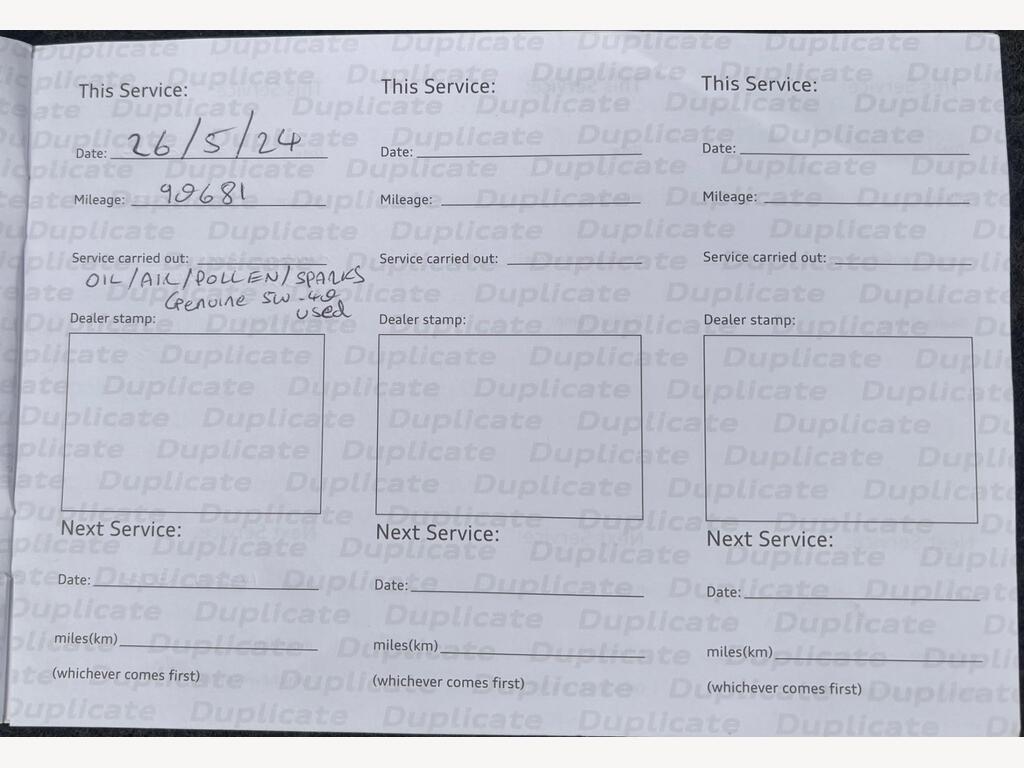 This Service:
Date: 26/5/24
Mileage: 90681
Service carried out:
OIL/AIR/POLLEN/SPARKS
Genuine 5W-40
used
Dealer stamp:
Next Service:
Date:
miles(km)
(whichever comes first)
This Service:
Date:
Mileage:
Service carried out:
Dealer stamp:
Next Service:
Date:
miles(km)
(whichever comes first)
This Service:
Date:
Mileage:
Service carried out:
Dealer stamp:
Next Service:
Date:
miles(km)
(whichever comes first)
Duplicate